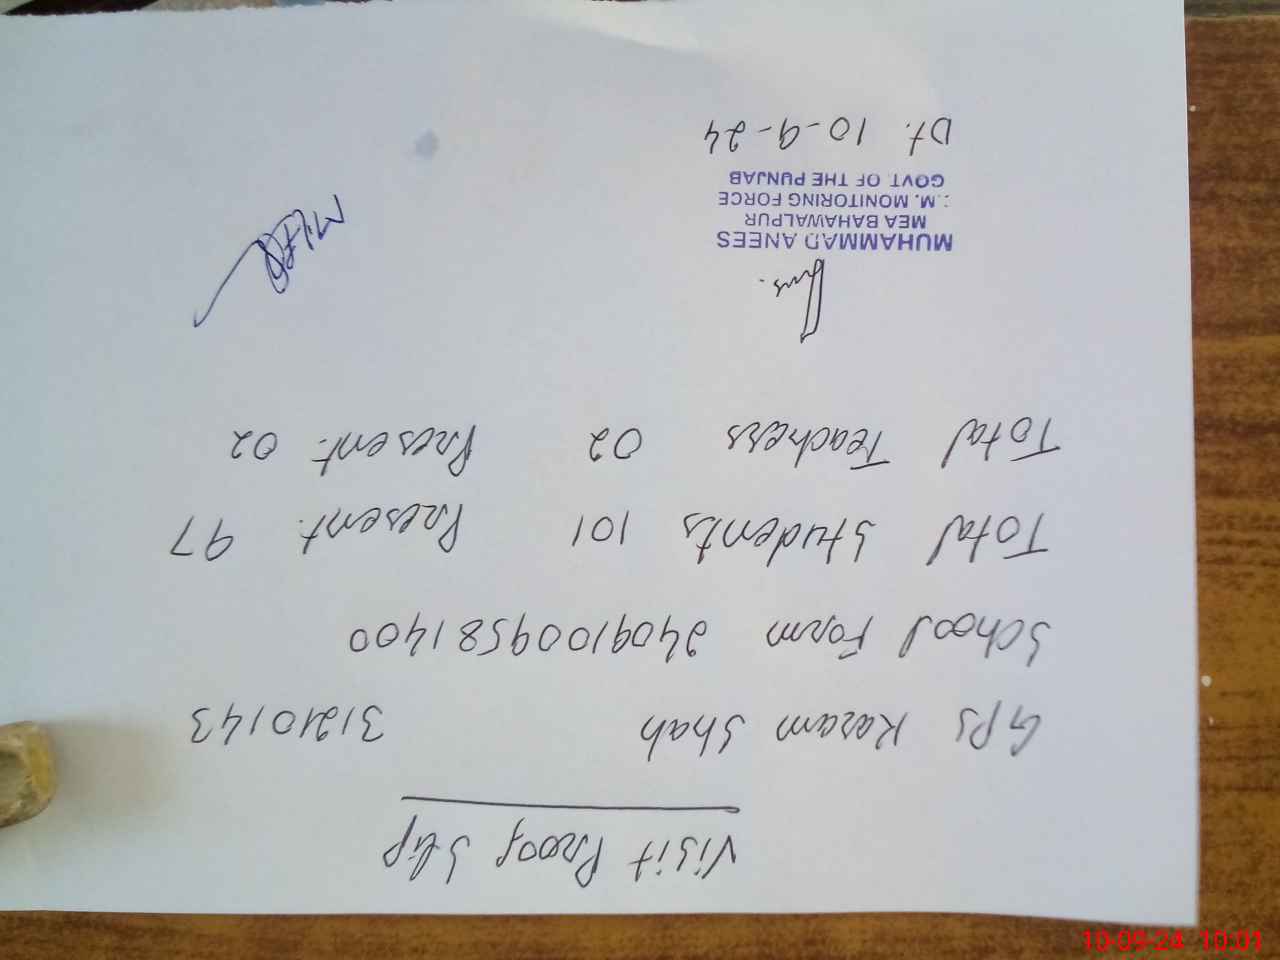 Visit Proof Slip
GPS Kazam Shah 31210143
School Form 2409100958 1400
Total Students 101 Present. 97
Total Teachers 02 Present. 02
MUHAMMAD ANEES
MEA BAHAWALPUR
.M. MONITORING FORCE
GOVT. OF THE PUNJAB
Dt. 10-9-24
10-09-24 10:01